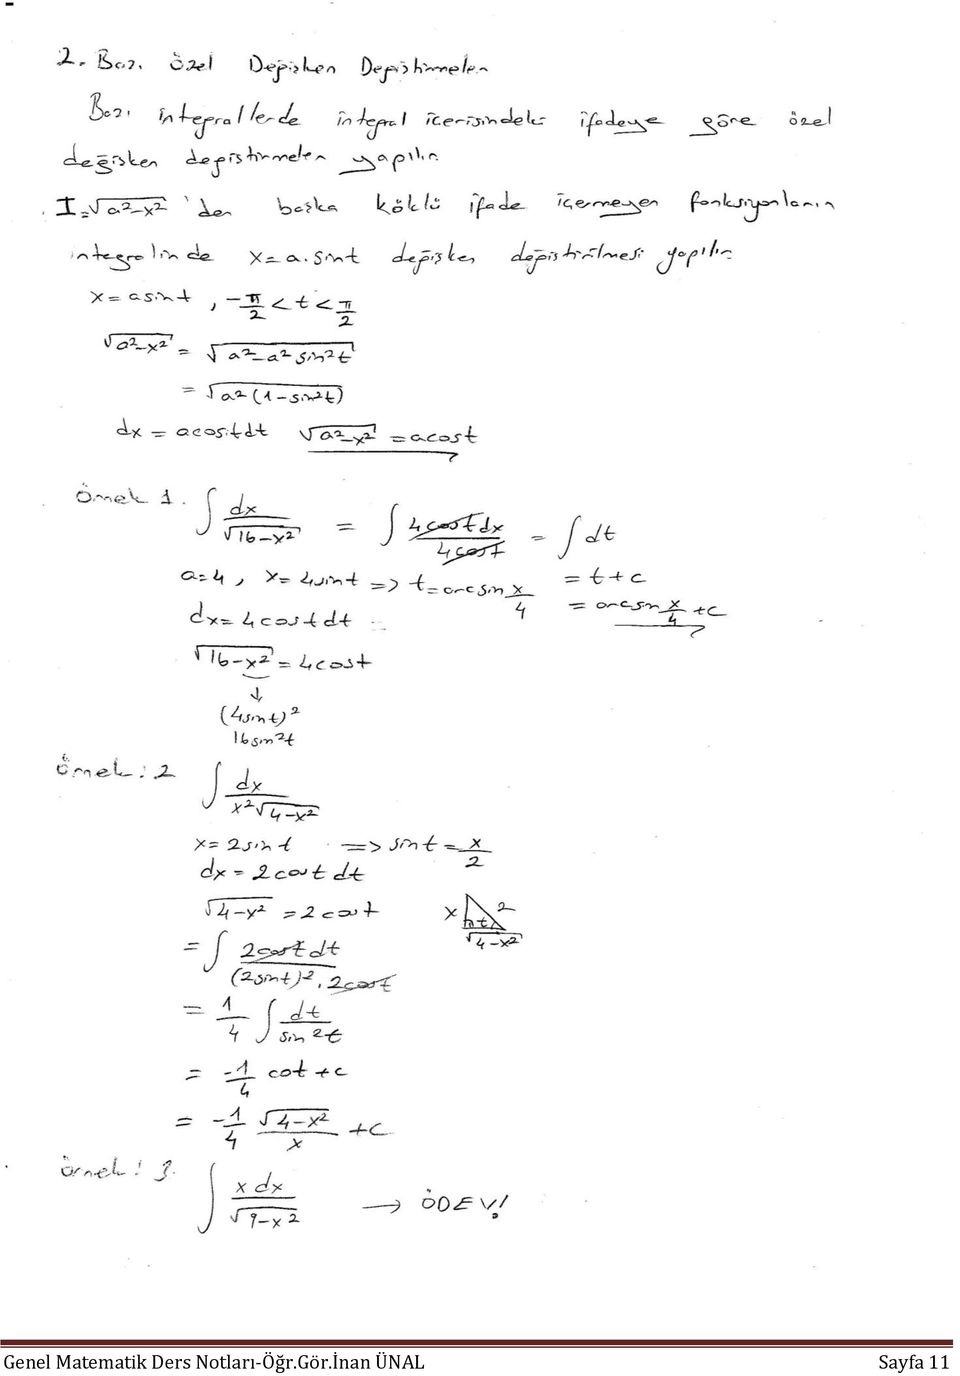 2. Bazı özel Değişken Değiştirmeler
Bazı integrallerde integral içerisindeki ifadeye göre özel
değişken değiştirmeler yapılır.
I=√a²-x² 'den başka köklü ifade içermeyen fonksiyonların
integralinde x=a.sint değişken değiştirilmesi yapılır.
x=asint , -π/2 < t < π/2
√a²-x² = √a²-a²sin²t
= √a²(1-sin²t)
dx = acostdt √a²-x² = acost
Örnek 1. ∫ dx/√16-x² = ∫ 4costdx/4cost = ∫dt
a=4 , x=4sint => t=arcsin x/4 = t+c
dx=4costdt = arcsin x/4 +c
√16-x² = 4cost
↓
(4sint)²
16sin²t
Örnek: 2 ∫ dx/x²√4-x²
x=2sint => sint = x/2
dx = 2cost dt
√4-x² = 2cost x 2 t √4-x²
= ∫ 2cost dt/(2sint)².2cost
= 1/4 ∫ dt/sin²t
= -1/4 cot +c
= -1/4 √4-x²/x +c
örnek: 3. ∫ x dx/√9-x² → ÖDEV!
Genel Matematik Ders Notları-Öğr.Gör.İnan ÜNAL Sayfa 11